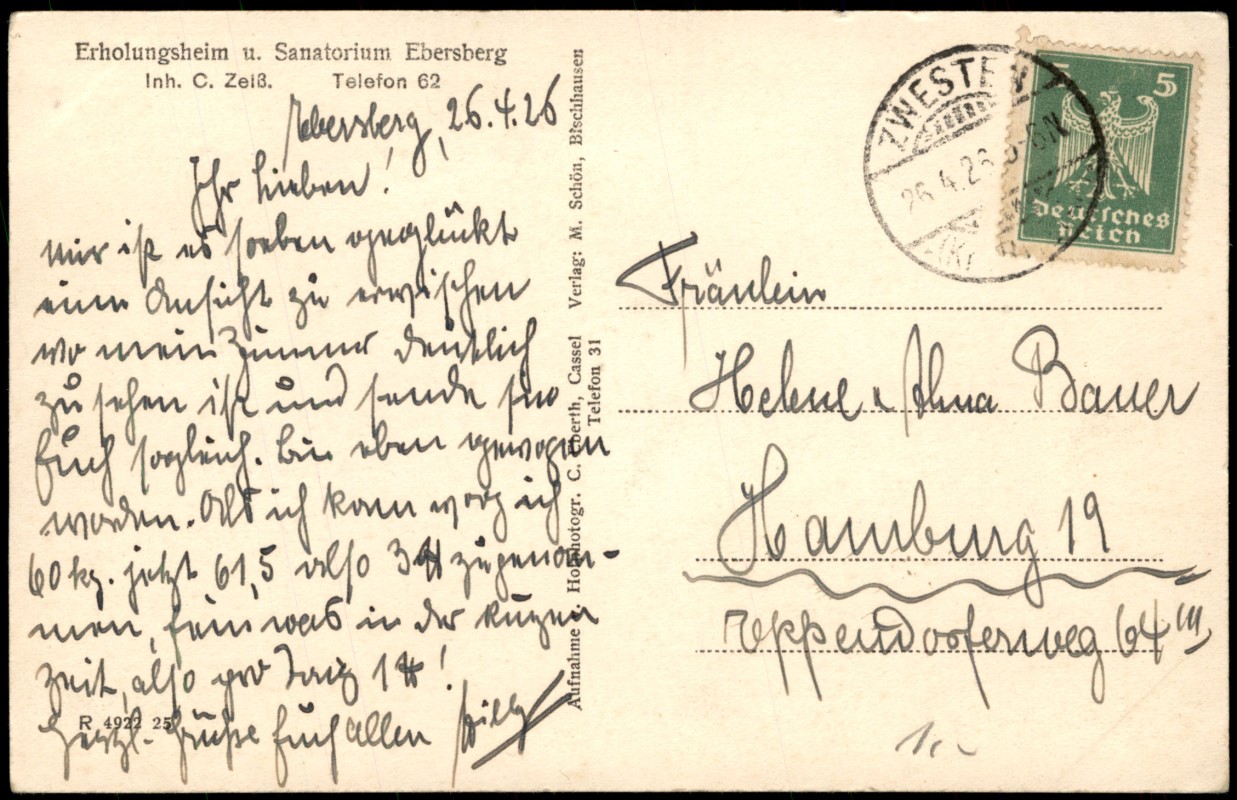 Erholungsheim u. Sanatorium Ebersberg
Inh. C. Zeiß. Telefon 62
Ebersberg, 26.4.26
Ihr Lieben!
Mir ist es soeben geglückt
eine Ansicht zu erwischen
wo mein Zimmer deutlich
zu sehen ist und sende sie
Euch sogleich. Bin eben gewogen
worden. Als ich kam wog ich
60 kg. jetzt 61,5 also 3 ℔ zugenom-
men, fein was in der kurzen
Zeit, also pro Tag 1 ℔!
Herzl. Grüße Euch allen
R 4922 25
Aufnahme: Hofphotogr. C. Eberth, Cassel Verlag: M. Schön, Bischhausen
Telefon 31
ZWESTEN
26.4.26
5 5
Deutsches
Reich
Fräulein
Helene & Alma Bauer
Hamburg 19
Eppendorferweg 64 III
1.-